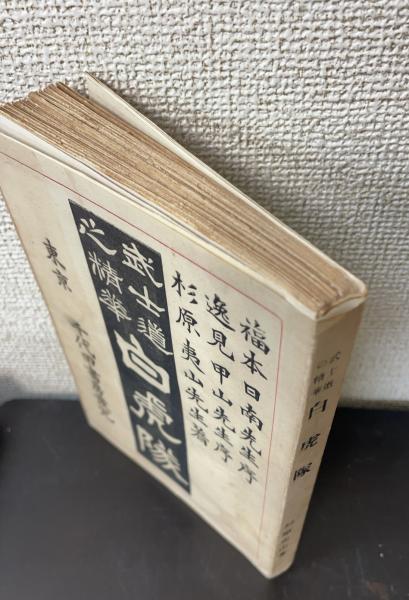 福本日南先生序
逸見甲山先生序
杉原夷山先生著
武士道
之精華
白虎隊
東京
武士道
の精華
白虎隊